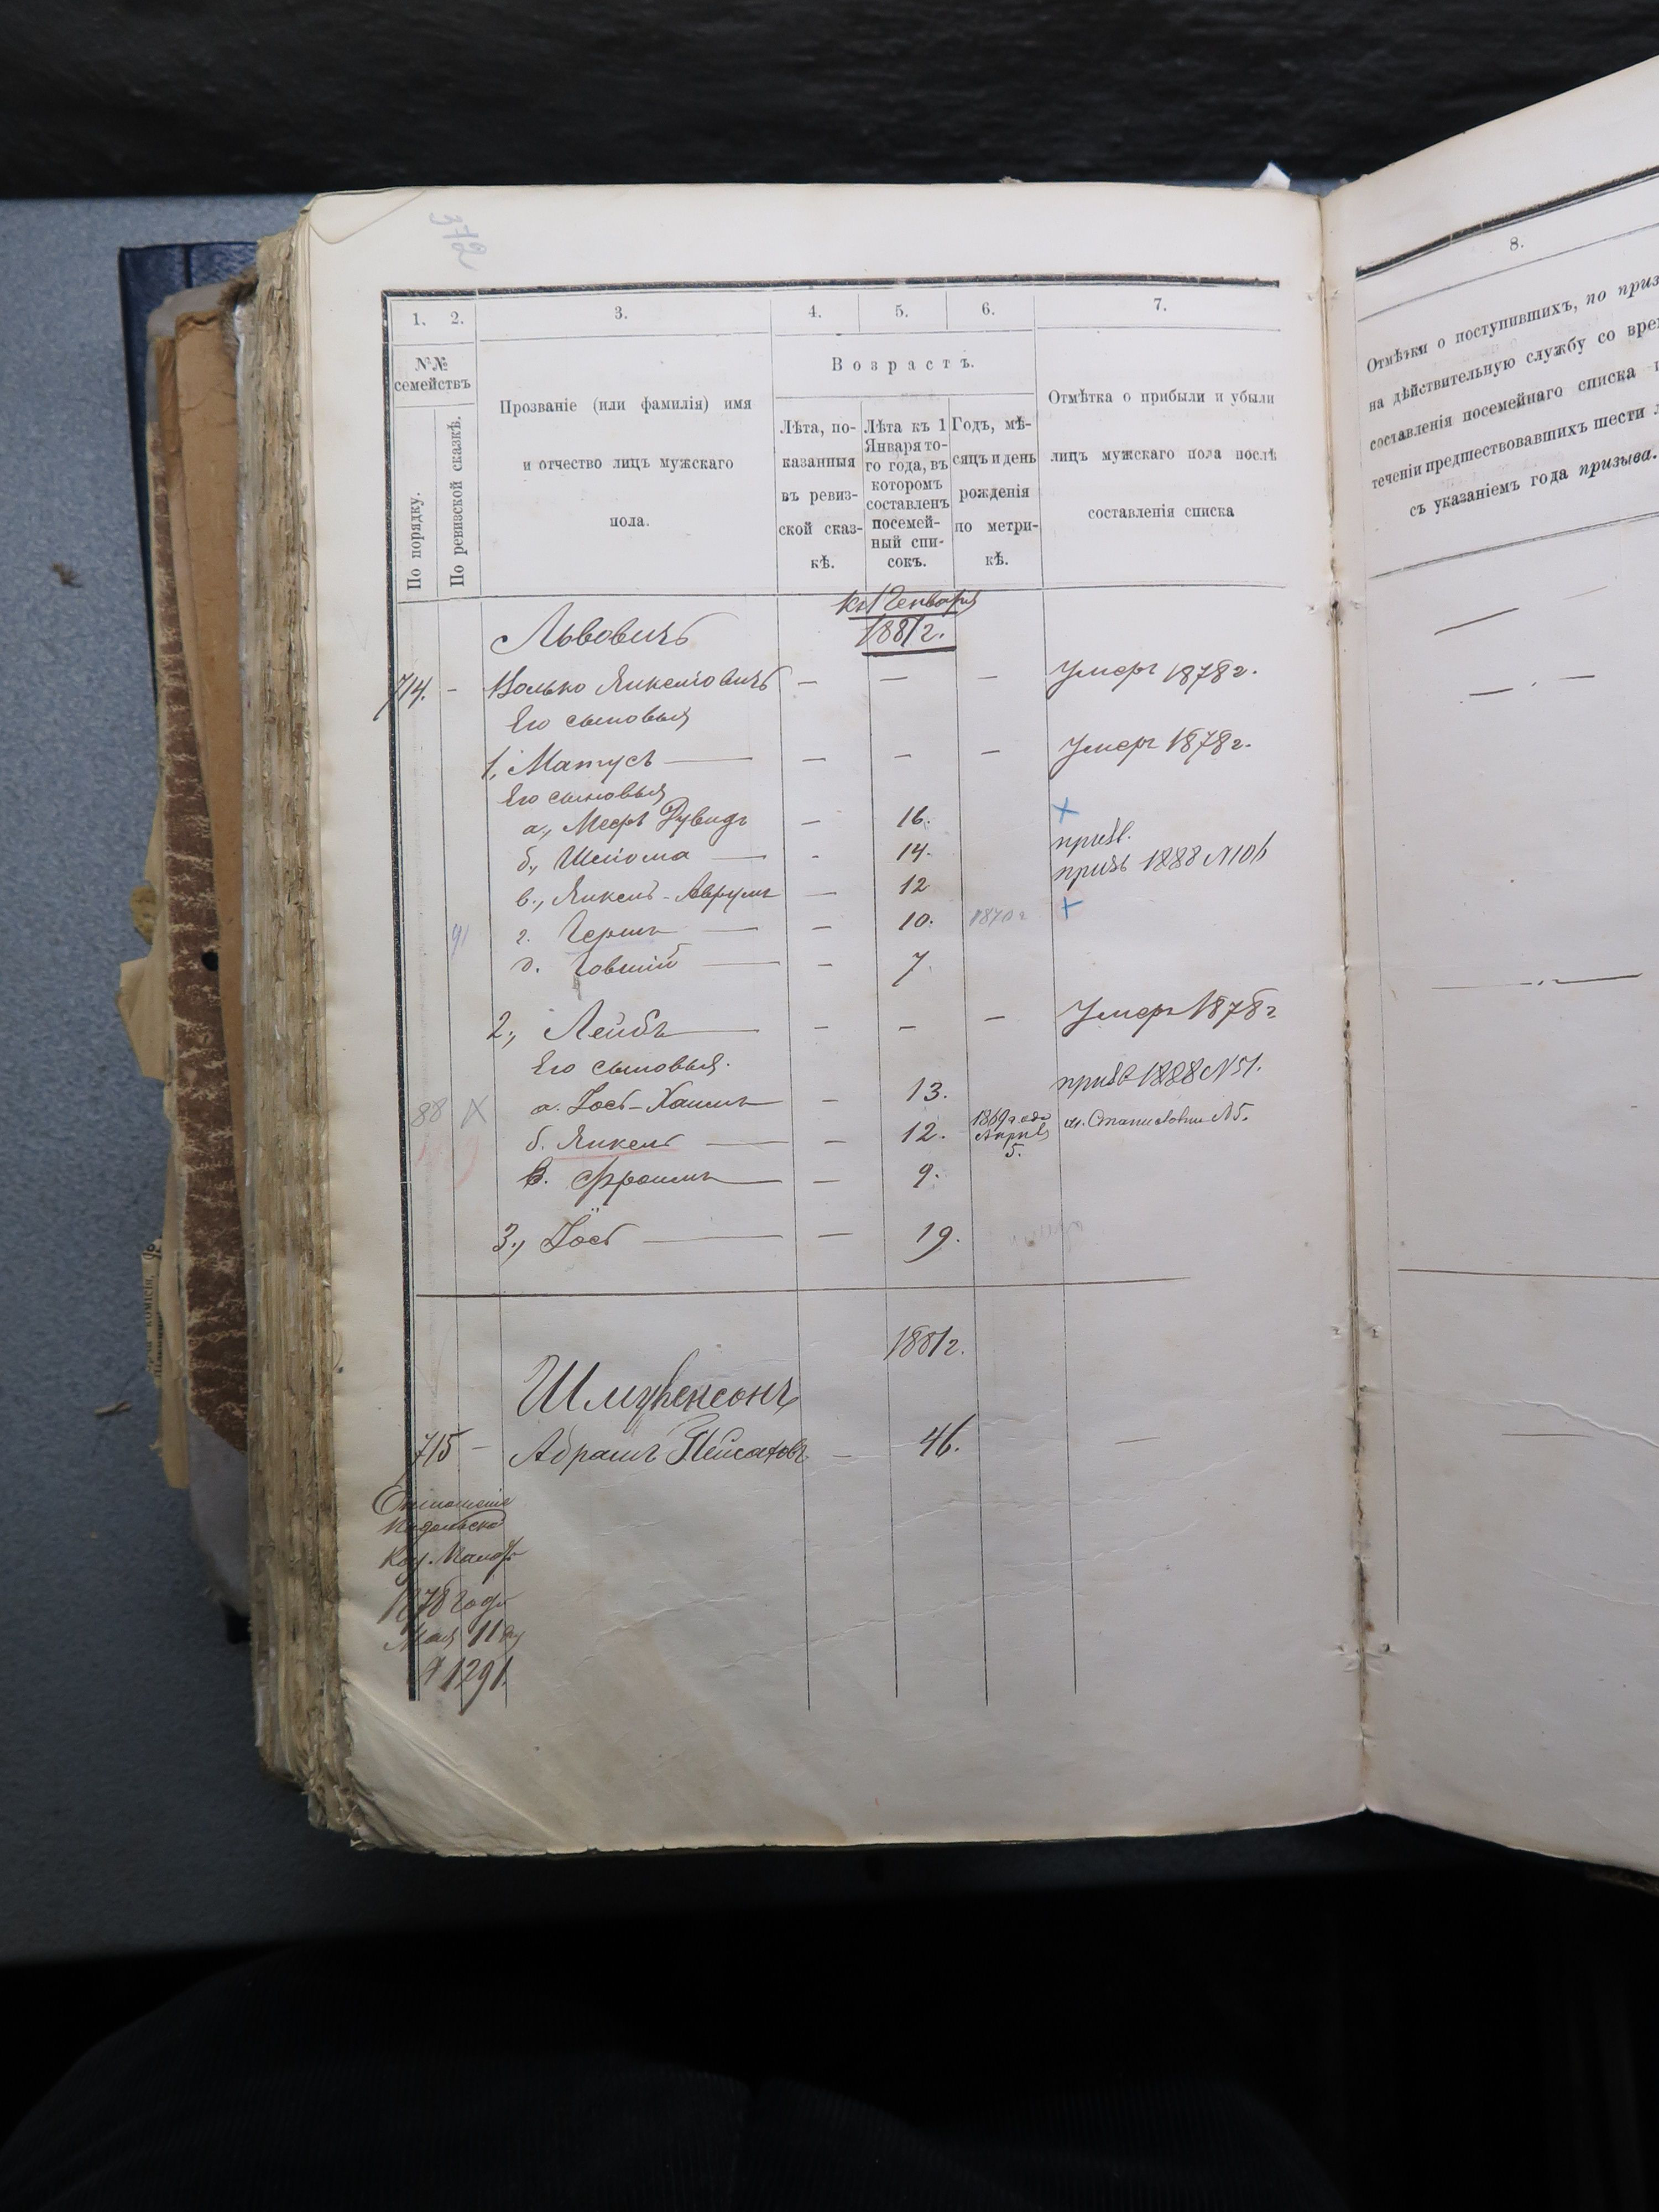 378
1. 2. 3. 4. 5. 6. 7.
№№ семействъ
По порядку.
По ревизской сказкѣ.
Прозваніе (или фамилія) имя
и отчество лицъ мужскаго
пола.
Возрастъ.
Лѣта, по-
казанныя
въ ревиз-
ской сказ-
кѣ.
Лѣта къ 1
Января то-
го года, въ
которомъ
составленъ
посемей-
ный спи-
сокъ.
Годъ, мѣ-
сяцъ и день
рожденія
по метри-
кѣ.
Отмѣтка о прибыли и убыли
лицъ мужскаго пола послѣ
составленія списка
къ 1 Генваря
1881 г.
Львовичъ
714. - Волько Янкелiовичъ — — — Умеръ 1878 г.
Его сыновья
1, Матусъ — — — — Умеръ 1878 г.
Его сыновья
а., Мееръ Рувидъ — 16. +
б., Шлiома — - 14. призв.
в., Янкель-Аврумъ — 12 призв 1888 №106
91 г. Гершъ — — 10. 1870 г +
д. Говшiй — — 7.
2., Лейбъ — — — — Умеръ 1878 г
Его сыновья.
88 X а. Iосъ-Хаимъ — 13. призв 1888 №51.
б. Янкель — — 12. 1869 года Апрѣля 5. м. Станиславчи №5.
в. Фроимъ — — 9.
3., Iосъ — — 19.
1881 г.
715 - Абрамъ Пейсаховъ — 46. —
Отношенiе
Подольской
Каз. Палаты
1878 года
Мая 11 дня
№ 1291.
8.
Отмѣтки о поступившихъ, по приз
на дѣйствительную службу со вре
составленія посемейнаго списка
теченіи предшествовавшихъ шести
съ указаніемъ года призыва.